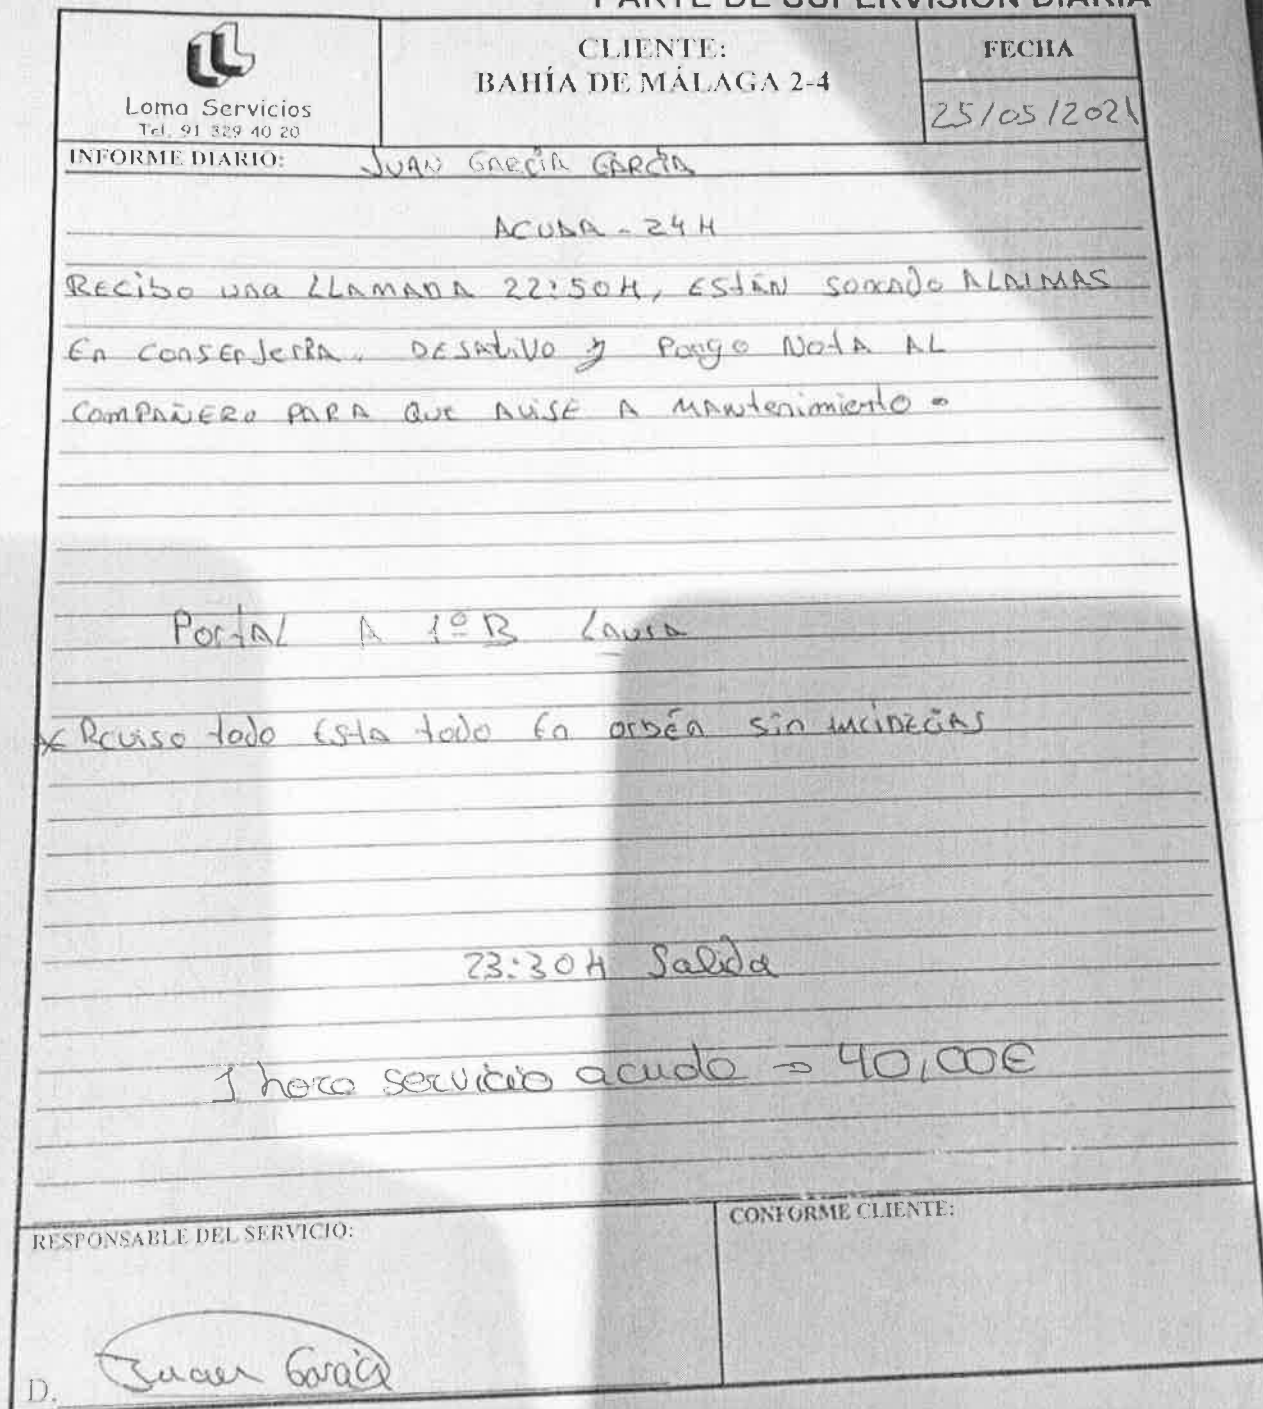 PARTE DE SUPERVISIÓN DIARIA
Loma Servicios
Tel. 91 329 40 20
CLIENTE:
BAHÍA DE MÁLAGA 2-4
FECHA
25/05/2021
INFORME DIARIO: JUAN GARCÍA GARCÍA
ACUDA - 24 H
RECibo una LLAMADA 22:50H, ESTÁN sonado ALARMAS
En consErJerRA. DESAtiVo y Pongo NotA AL
COMPAÑERO PARA QUE AVISE A MANtenimiento.
PortAL A 1º B Laura
Reviso todo EStA todo En ordén sin incidecias
23:30H Salida
1 hora servicio acudo = 40,00€
RESPONSABLE DEL SERVICIO:
CONFORME CLIENTE:
D. Juan García